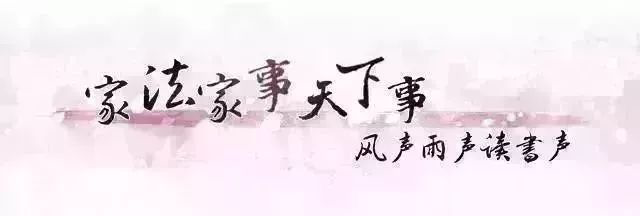 家法家事天下事
风声雨声读书声